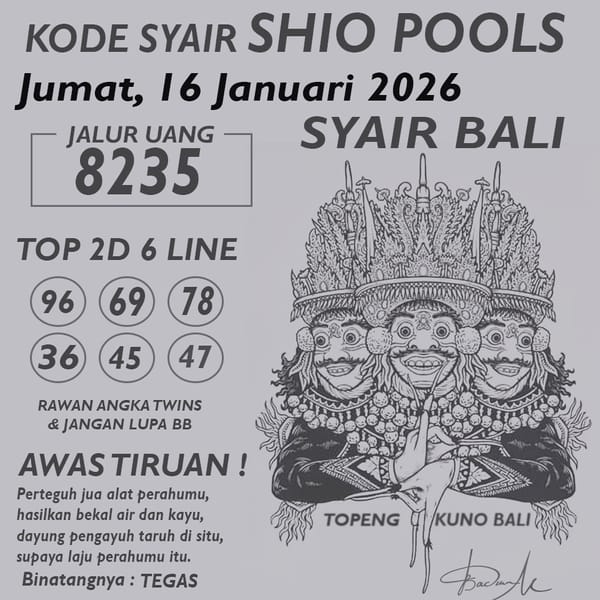 KODE SYAIR SHIO POOLS
Jumat, 16 Januari 2026
JALUR UANG
8235
SYAIR BALI
TOP 2D 6 LINE
96 69 78
36 45 47
RAWAN ANGKA TWINS
& JANGAN LUPA BB
AWAS TIRUAN !
Perteguh jua alat perahumu,
hasilkan bekal air dan kayu,
dayung pengayuh taruh di situ,
supaya laju perahumu itu.
Binatangnya : TEGAS
TOPENG KUNO BALI